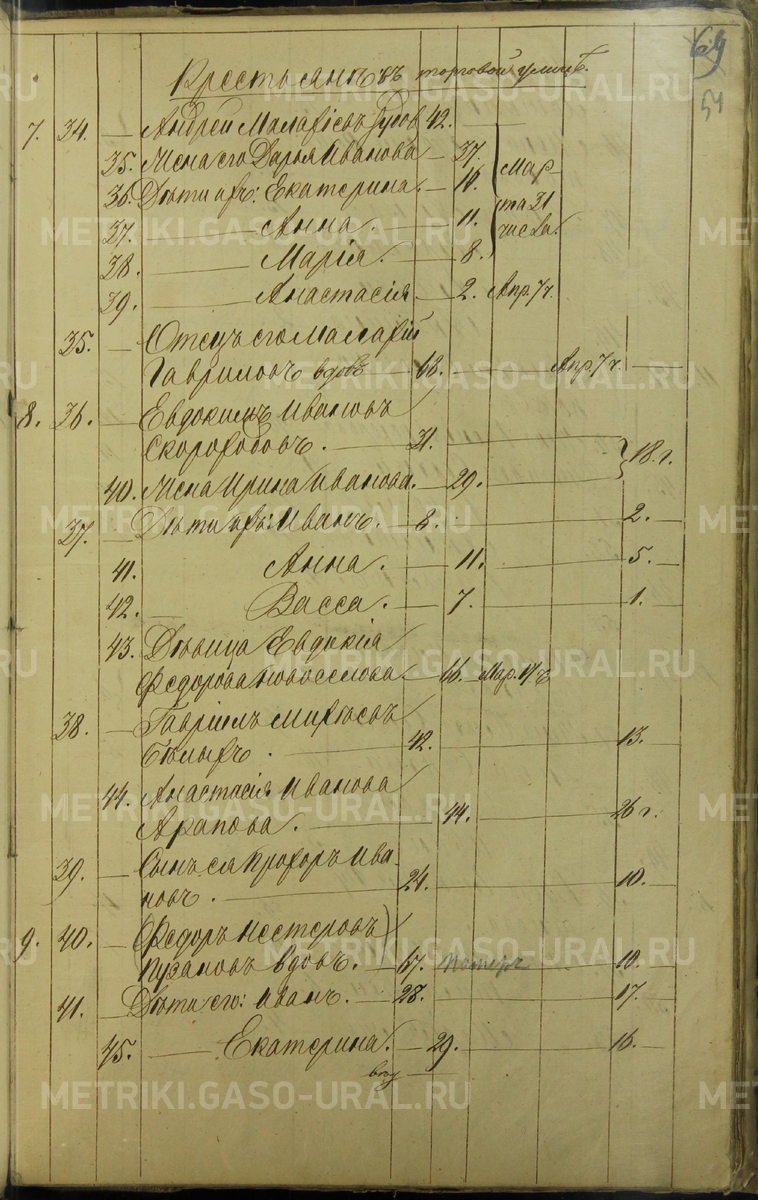 69
54
Крестьянъ въ торговой улицѣ.
7. 34. — Андрей Маларіевъ 42. —
35. Жена его Дарья Иванова — 37.
36. Дѣти ихъ: Екатерина. —
Мар
37. — Анна. — 11.
та 21
числа.
38. — Марія. — 8.
39. — Анастасія — 2. Апр. 7 ч.
35. — Отецъ его Маларій
Гавриловъ вдовъ — 68. — Апр. 7 ч. —
8. 36. — Евдокимъ Ивановъ
Скороходовъ. — 31. —
18. г.
40. Жена Ирина Иванова. — 29. —
37. — Дѣти ихъ: Иванъ. — 8. — 2. —
41. Анна. — 11. — 5. —
42. — Васса. — 7. — 1. —
43. Дѣвица Евдокія
Федорова Новоселова. — 16. Мар.
38. — Гавріилъ
Бѣлыхъ. — 42. — 13. —
44. Анастасія Иванова
Арапова. — 44. — 26 г. —
39. — Сынъ ея Прохоръ Ива-
новъ. — 24. — 10. —
9. 40. — Федоръ Нестеровъ
Пузановъ вдовъ. — 67. — 10. —
41. — Дѣти его: Иванъ. — 28. — 17. —
45. — Екатерина. — 29. — 16. —
METRIKI.GASO-URAL.RU